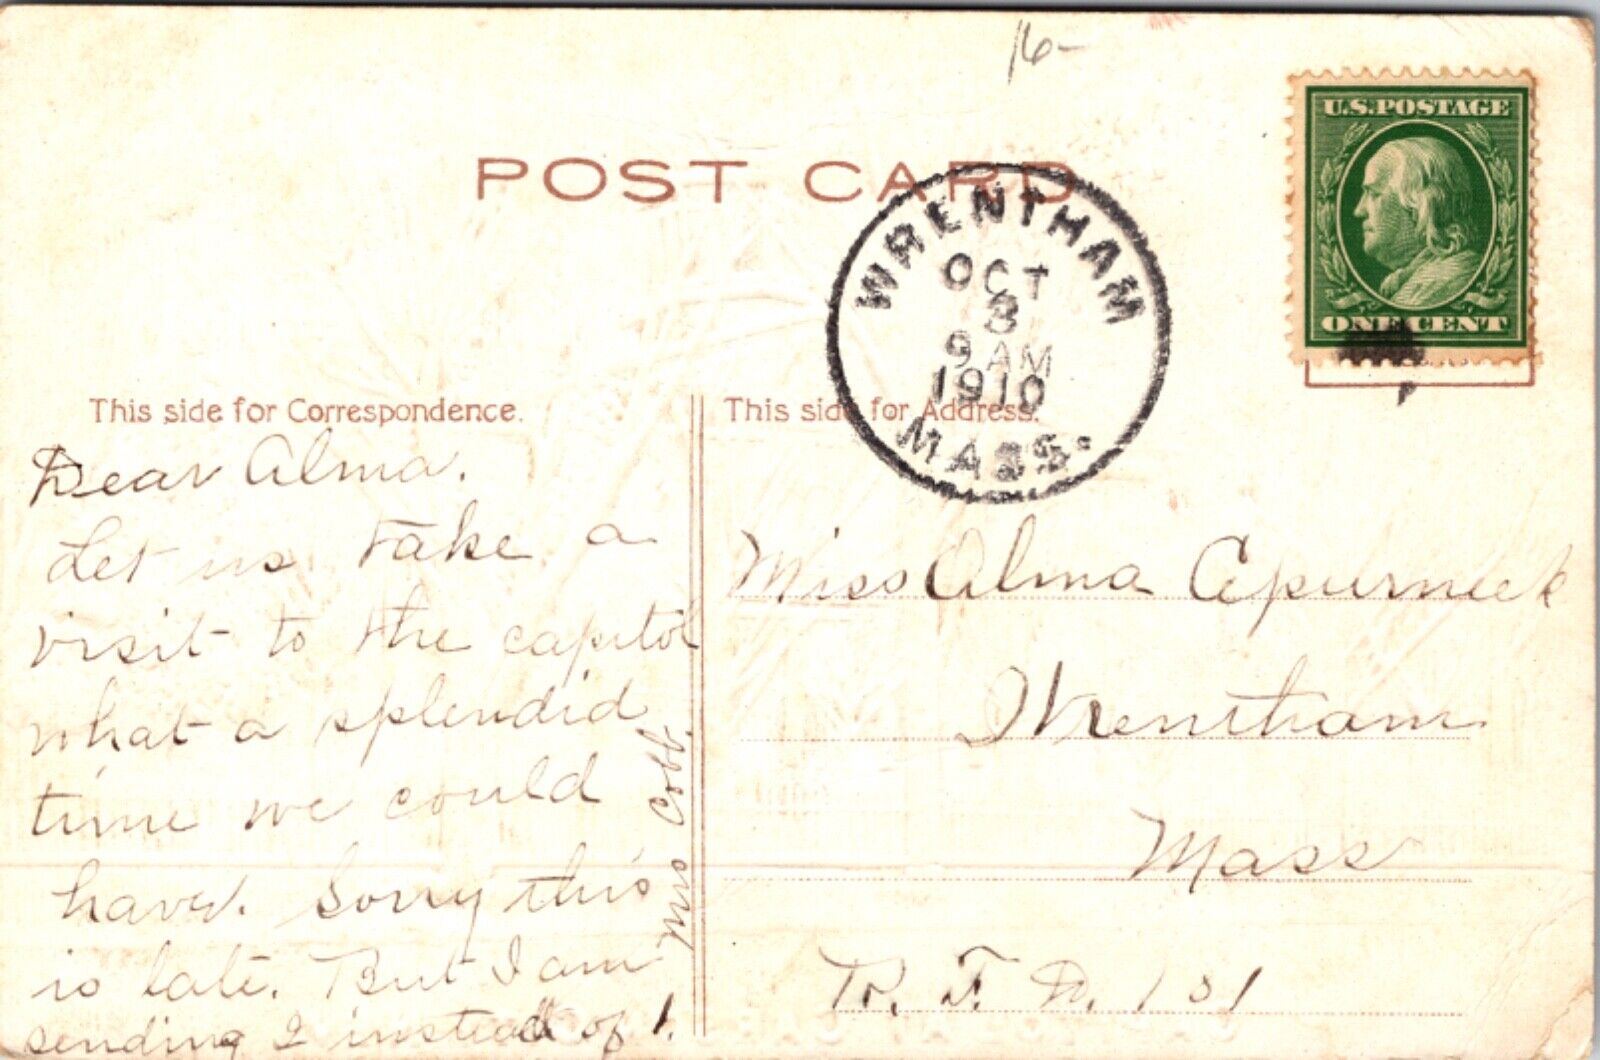 16-
U.S. POSTAGE
ONE CENT
POST CARD
WRENTHAM
OCT
3
9 AM
1910
MASS.
This side for Correspondence.
This side for Address.
Dear Alma.
Let us take a
visit to the capitol
what a splendid
time we could
have. Sorry this
is late. But I am
sending 2 instead of 1.
Mrs Cobb.
Miss Alma
Wrentham
Mass
R. F. D. 101